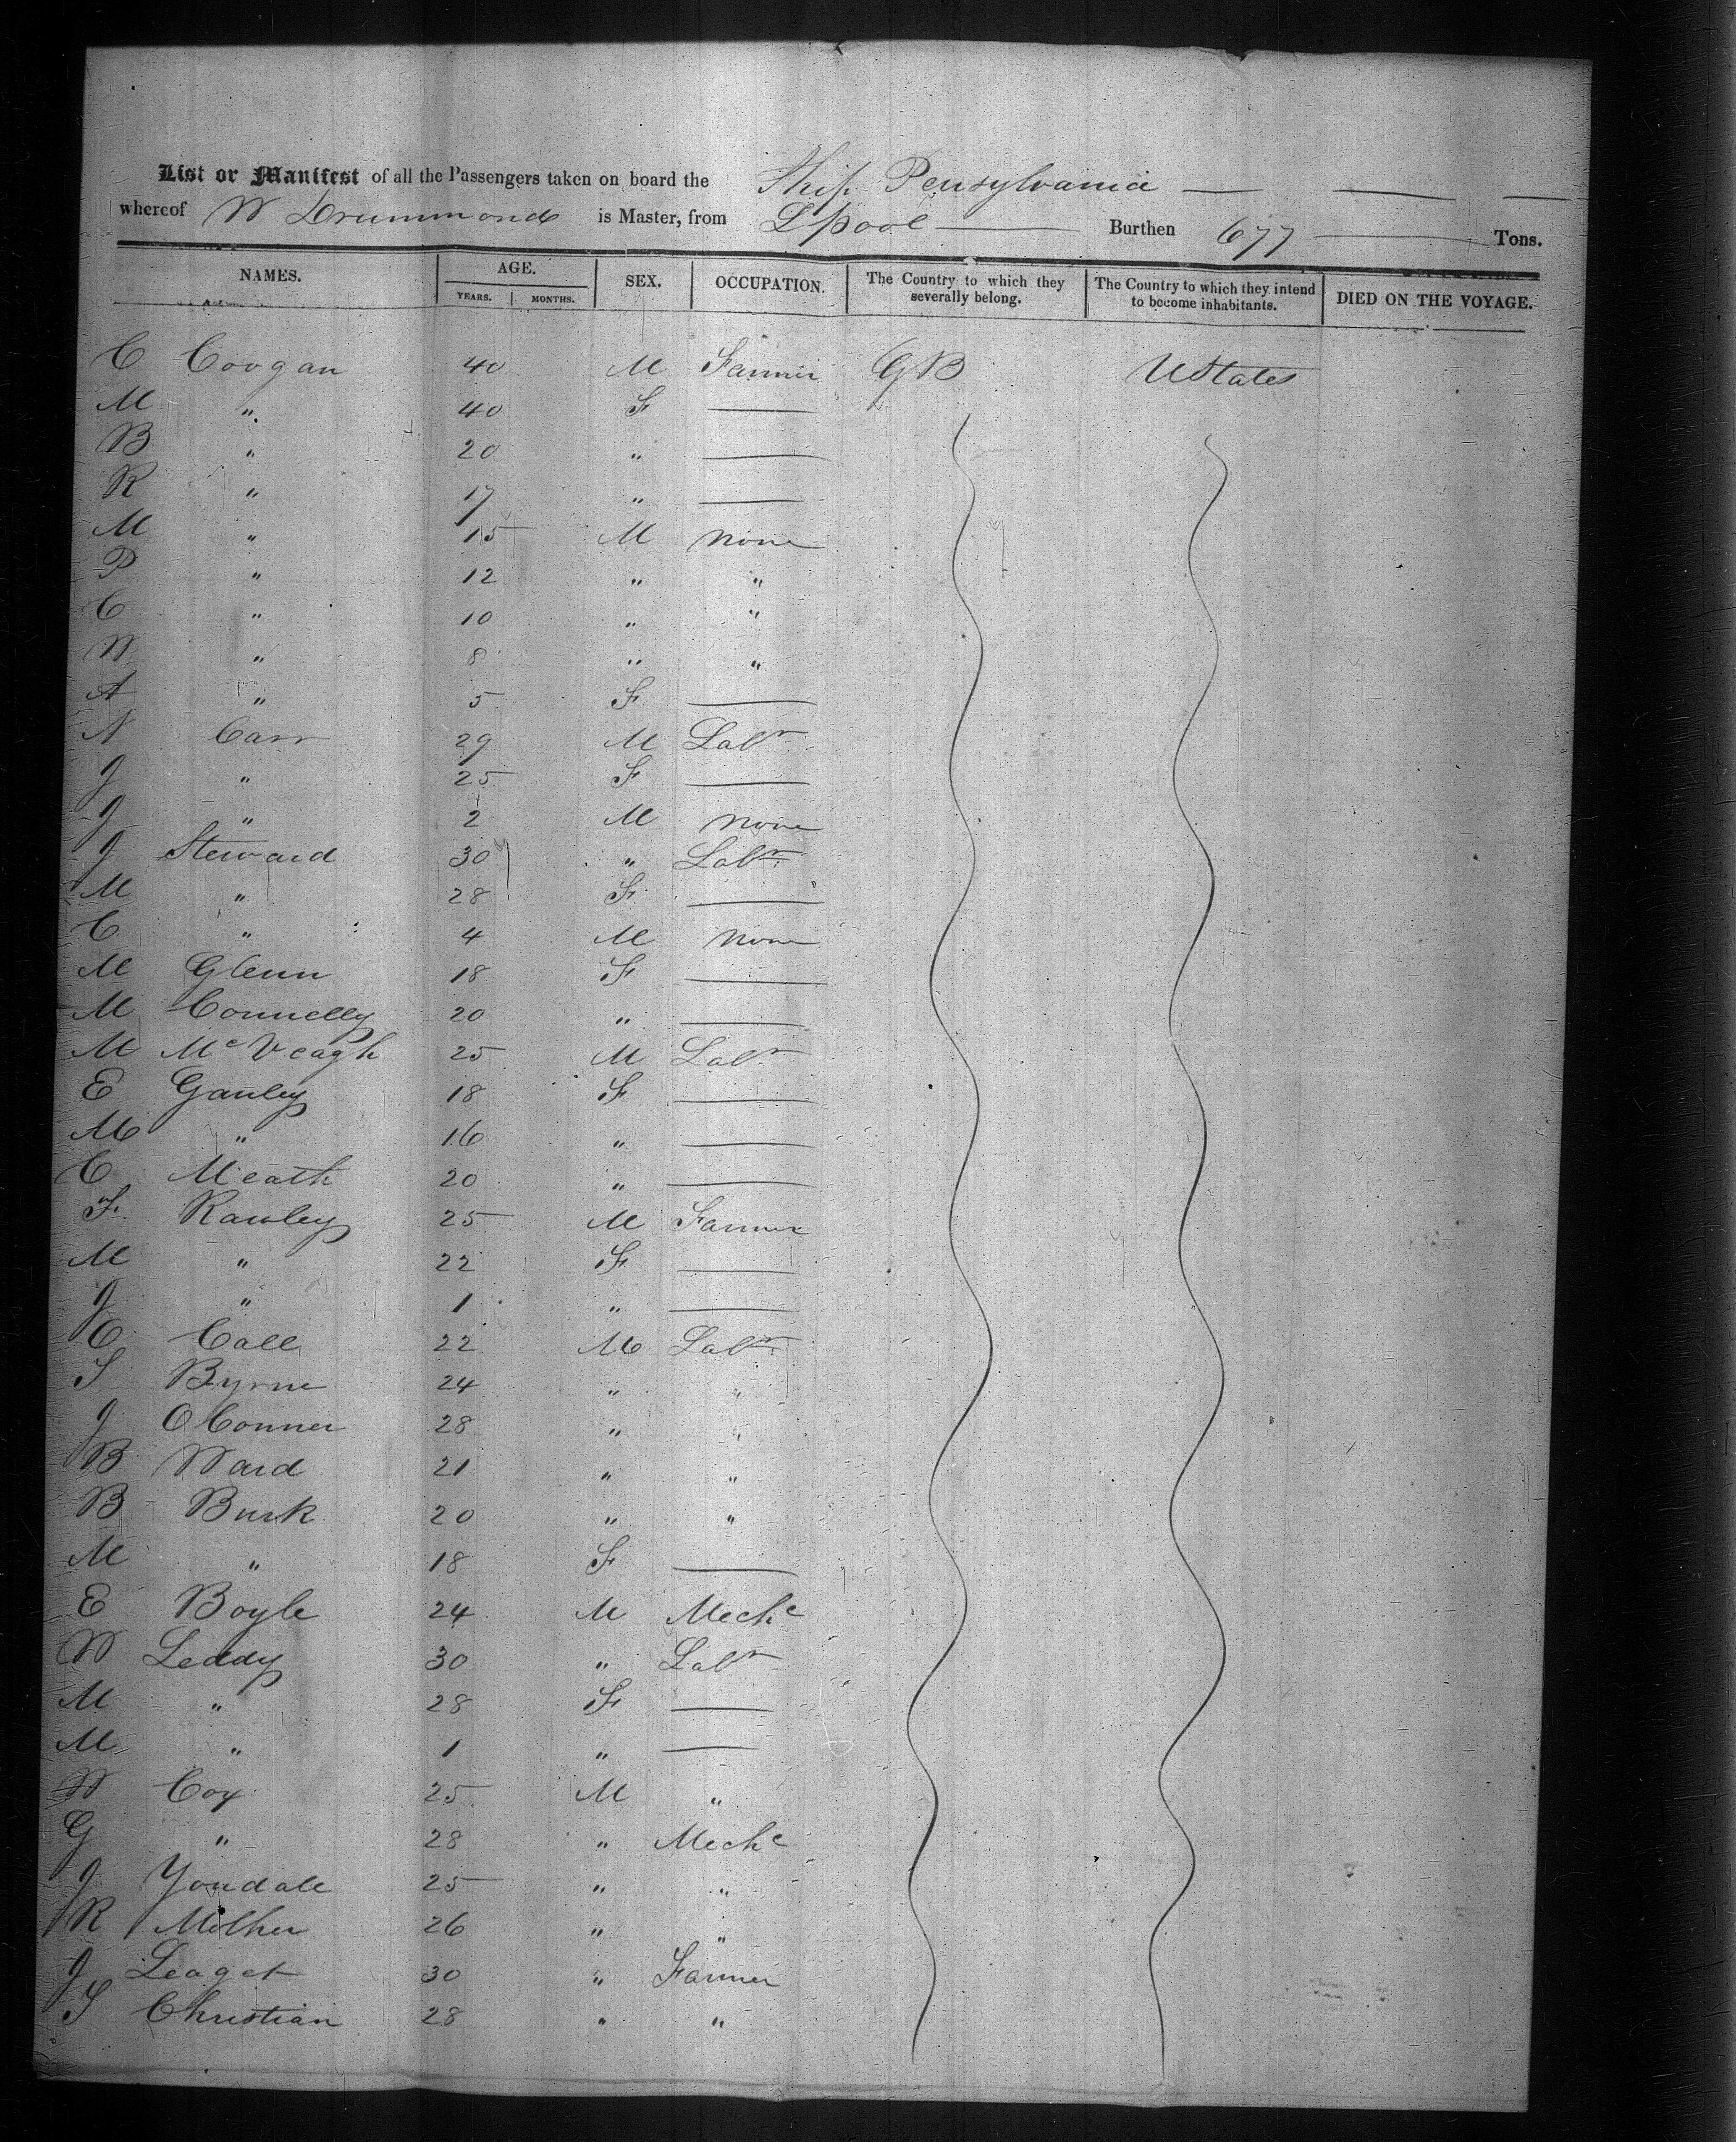 List or Manifest of all the Passengers taken on board the Ship Pensylvania
whereof W Drummond is Master, from Lpool Burthen 677 Tons.
NAMES. AGE. YEARS. MONTHS. SEX. OCCUPATION. The Country to which they severally belong. The Country to which they intend to become inhabitants. DIED ON THE VOYAGE.
C Coogan 40 M Farmer GB UStates
M " 40 F —
B " 20 " —
R " 17 " —
M " 15 M none
P " 12 " "
C " 10 " "
W " 8 " "
A " 5 F —
N Carr 29 M Labr
J " 25 F —
J " 2 M none
J Steward 30 " Labr
M " 28 F —
C " 4 M none
M Glenn 18 F —
M Connelly 20 " —
M McVeagh 25 M Labr
E Ganley 18 F —
M " 16 " —
C Meath 20 " —
F Rawley 25 M Farmer
M " 22 F —
J " 1 " —
C Call 22 M Labr
S Byrne 24 " "
J OConner 28 " "
B Ward 21 " "
B Burk 20 " "
M " 18 F —
E Boyle 24 M Mechc
W Leddy 30 " Labr
M " 28 F —
M " 1 " —
W Cox 25 M "
G " 28 " Mechc
J Youdale 25 " "
R 26 " "
J 30 " Farmer
S Christian 28 " "